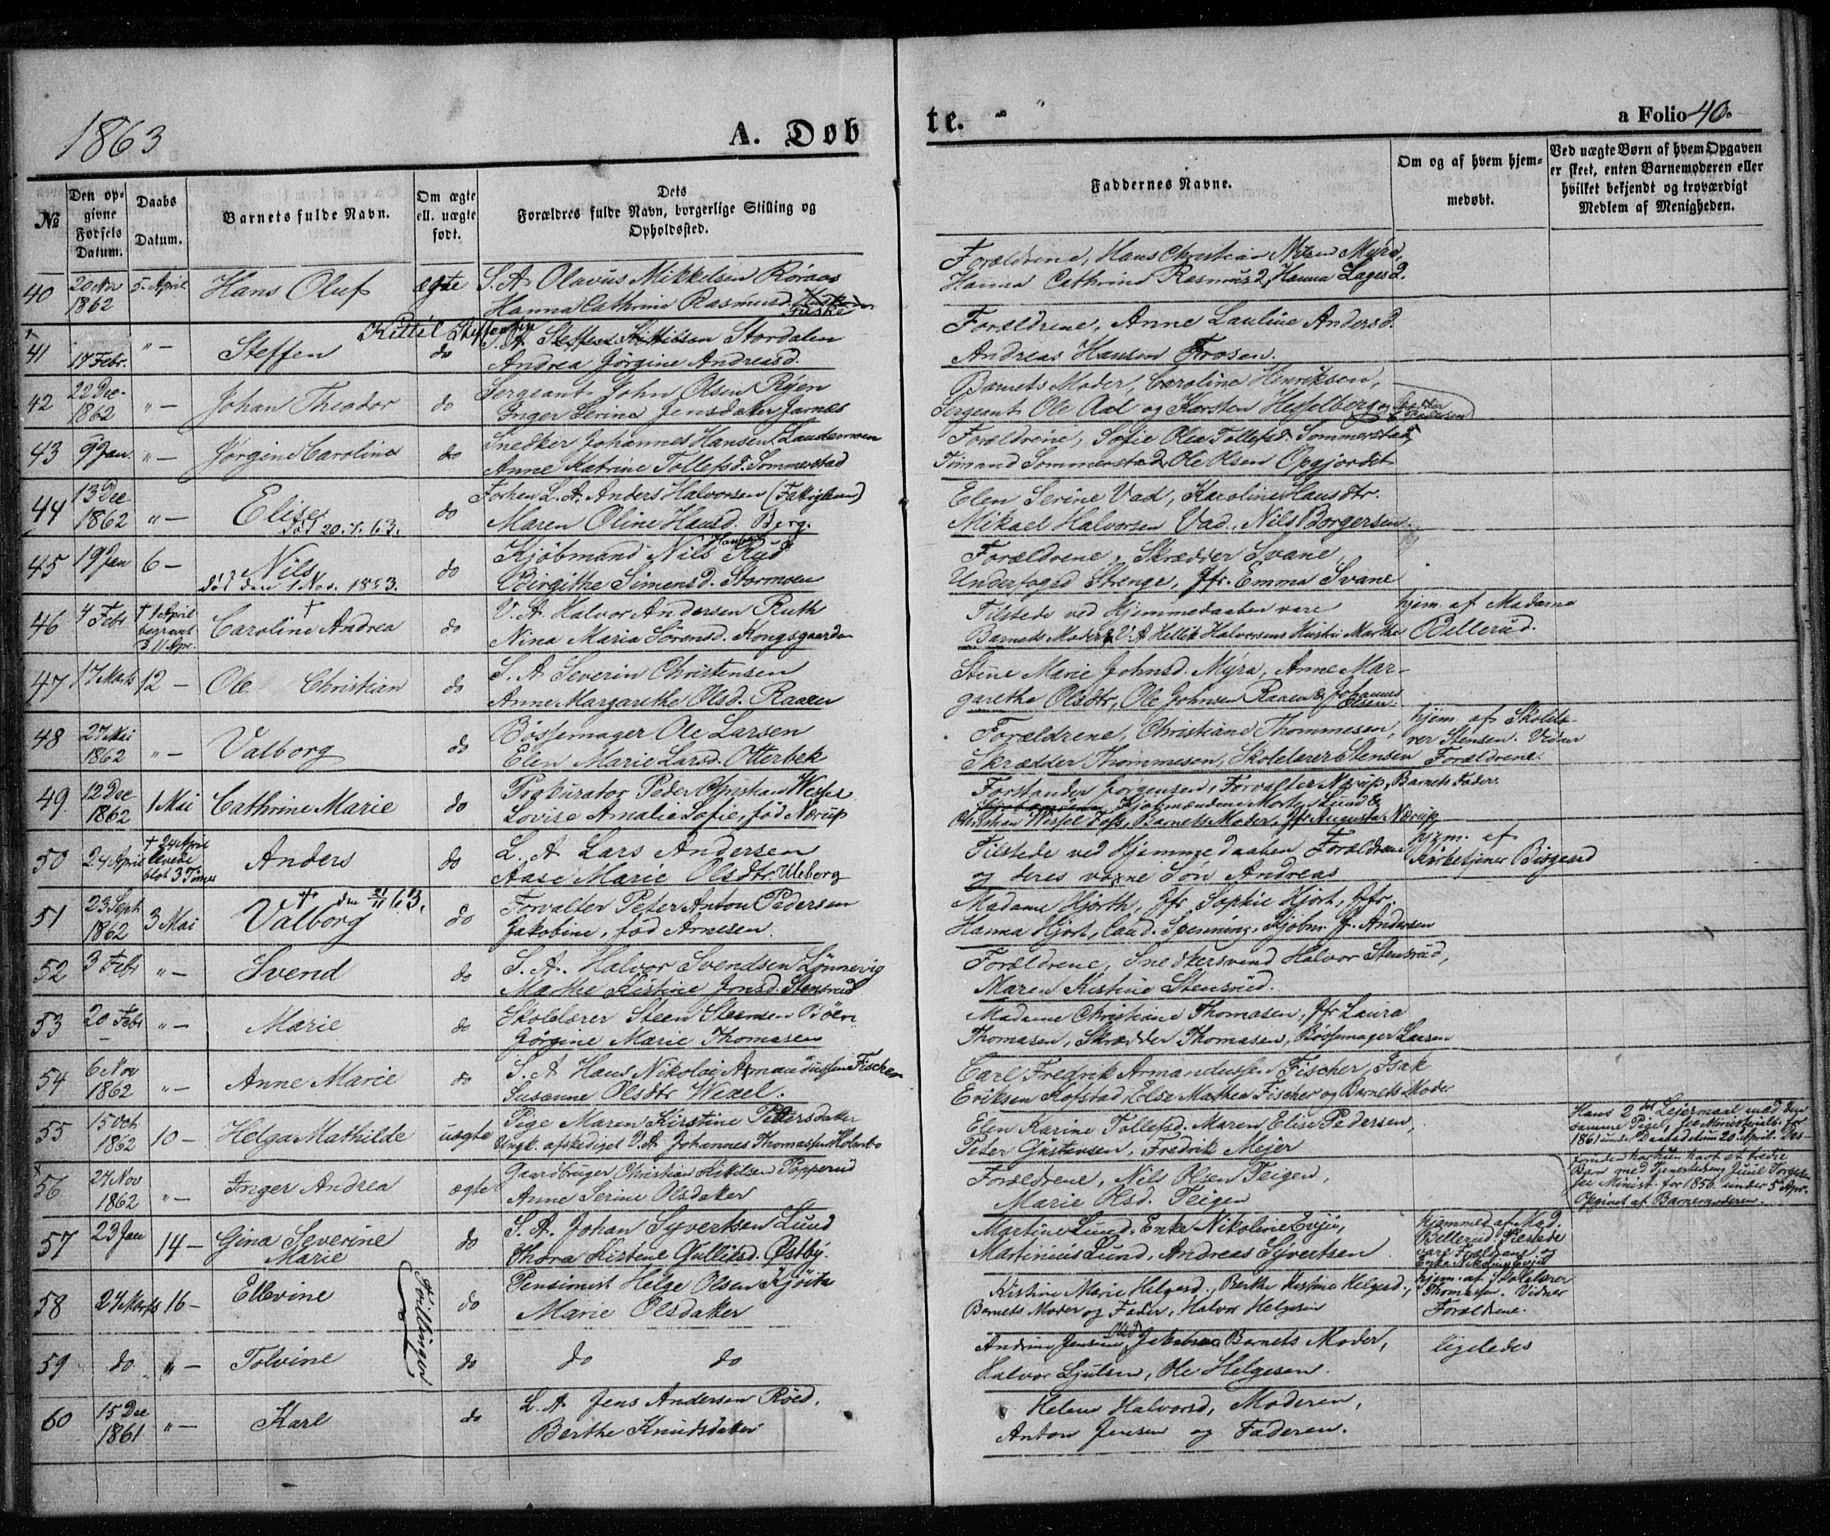 1863
A. Døb
te.
a Folio 40.
№
Den opgivne Fødsels Datum.
Daabs Datum.
Barnets fulde Navn.
Om ægte ell. uægte født.
Dets Forældres fulde Navn, borgerlige Stilling og Opholdssted.
Faddernes Navne.
Om og af hvem hjemmedøbt.
Ved uægte Børn af hvem Opgaven er skeet, enten Barnemoderen eller hvilket bekjendt og troværdigt Medlem af Menigheden.
40 20 Nov 1862 5 April Hans Oluf ægte S. A. Olavus Mikkelsen Røraas
Hanna Cathrine Rasmusd.
Forældrene, Hans Christian Nilsen Myra,
Hanna Cathrine Rasmusd., Hanna Lagesd.
41 17 Febr. "— Steffen Kittil Steffensen do S. A. Steffen Kittilsen Stordalen
Andrea Jørgine Andreasd.
Forældrene, Anne Lauline Andersd.
Andreas Hansen Frosen.
42 22 Dec. 1862 "— Johan Theodor do Sergeant John Olsen Ryen
Inger Serine Jensdaker Jarnæs
Barnets Moder, Caroline Henriksen,
Sergeant Ole Aal og Karsten Hesselberg og
43 9 Jan. "— Jørgine Caroline do Snedker Johannes Hansen Laudemoen
Anne Katrine Tollefsd. Sommerstad
Forældrene, Sofie Olea Tollefsd. Sommerstad,
Timand Sommerstad, Ole Olsen Opgjordet
44 13 Dec 1862 "— Elise do Forhen L. A. Anders Halvorsen (Fattiglem)
død 20.7.63. Maren Oline Hansd. Berg.
Elen Serine Vad, Karoline Hansdtr.
Mikael Halvorsen Vad, Nils Borgersen.
45 19 Jan 6 — Nils do Kjøbmand Nils Hansen Ryd
død den 1 Nov. 1863. Bergithe Simensd. Stormoen
Forældrene, Skrædder Svane,
Underfoged Strenge, Jfr. Emma Svane
46 4 Febr † 1 April begravet d 11 Apr. Caroline Andrea † do V. A. Halvor Andersen Ruth
Nina Maria Sørensd. Kongsgaarden
Tilstede ved Hjemmedaaben vare
Barnets Moder, V. A. Kettil Halvorsens Hustru Marthe
hjem. af Madame Bellerud.
47 17 Marts 12 — Ole Christian do S. A. Severin Christensen
Anne Margarethe Olsd. Raaen
Stine Marie Johnsd. Myra, Anne Margarethe
Olsdtr, Ole Johnsen Raaen & Johannes Olsen.
48 27 Mai 1862 "— Valborg do Bøssemager Ole Larsen
Elen Marie Larsd. Otterbek
Forældrene, Christiane Thommesen,
Skrædder Thommesen, Skolelærer Stensen
hjem. af Skolelærer Stensen. Vidner Forældrene.
49. 12 Dec 1862 1 Mai Cathrine Marie do Prokurator Peder Christian Wessel
Lovise Amalie Sofie, fød Nærup
Forstander Jørgensen, Forvalter Nærup, Barnets Fader,
Kjøbmændene Morten Lund &
Christian Wessel Foss, Barnets Moder, Jfr. Augusta Nærup
50 24 April † 24 April levede blot 3 Timer Anders do L. A. Lars Andersen
Aase Marie Olsdtr Uleborg
Tilstede ved Hjemmedaaben Forældrene
og deres voxne Søn Andreas
hjem. af Kirketjener Bisgaard
51 23 Sept 1862 3 Mai Valborg † den 21/11 63. do Forvalter Peter Anton Pedersen
Jakobine, fød Arnesen.
Madame Hjorth, Jfr Sophie Hjort, Jfr.
Hanna Hjort, Cand. Spenning, Kjøbm. Andersen
52 3 Febr "— Svend do S. A. Halvor Svendsen Lønnevig
Marthe Kistine Jonsd. Stensrud
Forældrene, Snedkersvend Halvor Stensrud,
Maren Kistine Stensrud.
53 20 Febr "— Marie do Skolelærer Steen Steensen Bøen
Jørgine Marie Thomasen
Madame Christiane Thomasen, Jfr Laura
Thomasen, Skrædder Thomasen, Bøssemager Larsen
54 6 Nov 1862 "— Anne Marie do S. A. Hans Nikolai Armandussen Fischer
Susanne Olsdtr Wexel.
Carl Fredrik Armandussen Fischer, Isak
Eriksen Hofstad, Else Mathea Fischer og Barnets Moder
55 15 Oct 1862 10 — Helga Mathilde uægte Pige Maren Kirstine Pettersdaker
Ungk. afskediget V. A. Johannes Thomassen Holmbo
Elen Karine Tollefsd. Maren Elise Pedersen,
Peter Gustavsen, Fredrik Mejer
Hans 2det Leiermaal med den
samme Pige, see Ministerialb. for
1861 under Daabsdatum 20 April. Desforuden har hun havt et tredie
Barn med
see Minist. for 1856 under 5 Apr.
Opgivet af Barnemoderen.
56 24 Nov 1862 "— Inger Andrea ægte Gaardbruger Christian Mikkelsen Popperud
Anne Serine Olsdaker
Forældrene, Nils Olsen Teigen,
Marie Olsd. Teigen
57 23 Jan 14 — Gina Severine Marie do S. A. Johan Syvertsen Lund
Thora Kirstine Gulliksd. Østby.
Martine Lund, Enke Nikoline Evju,
Martinius Lund, Andreas Syvertsen
hjemmed. af Mad. Bellerud. Tilstede vare Forældrene og Enke Nikoline Evju
58 24 Marts 16 — Ellevine Tvillinger do Pensionist Helge Olsen Kjørta
Marie Olsdaker
Kistine Marie Helgesd., Berthe Kistine Helgesd.,
Barnets Moder og Fader, Halvor Helgesen
hjem. af Skolelærer Thomasen. Vidner Forældrene.
59 do "— Tolvine do do do
Andrine Jensine Olsd., Jakobine, Barnets Moder,
Halvor Ljutsen, Ole Helgesen.
ligeledes
60 15 Dec 1861 "— Karl do L. A. Jens Andersen Røed.
Berthe Knudsdaker
Helene Halvorsd, Moderen,
Anton Jensen og Faderen.